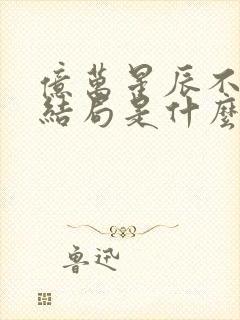 億萬星辰不
結局是什麼
魯迅